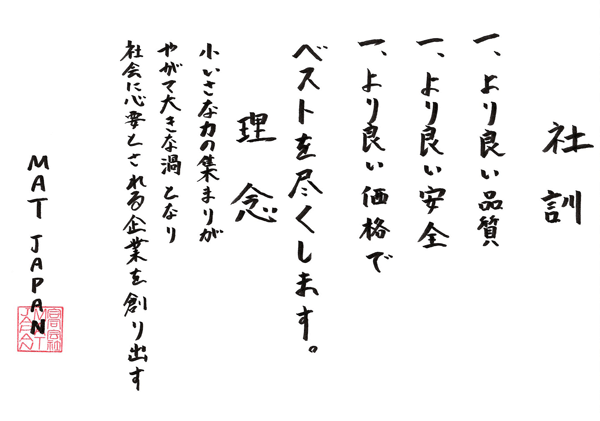 社訓
一、より良い品質
一、より良い安全
一、より良い価格で
ベストを尽くします。
理念
小いさな力の集まりが
やがて大きな渦となり
社会に必要とされる企業を創り出す
MAT JAPAN